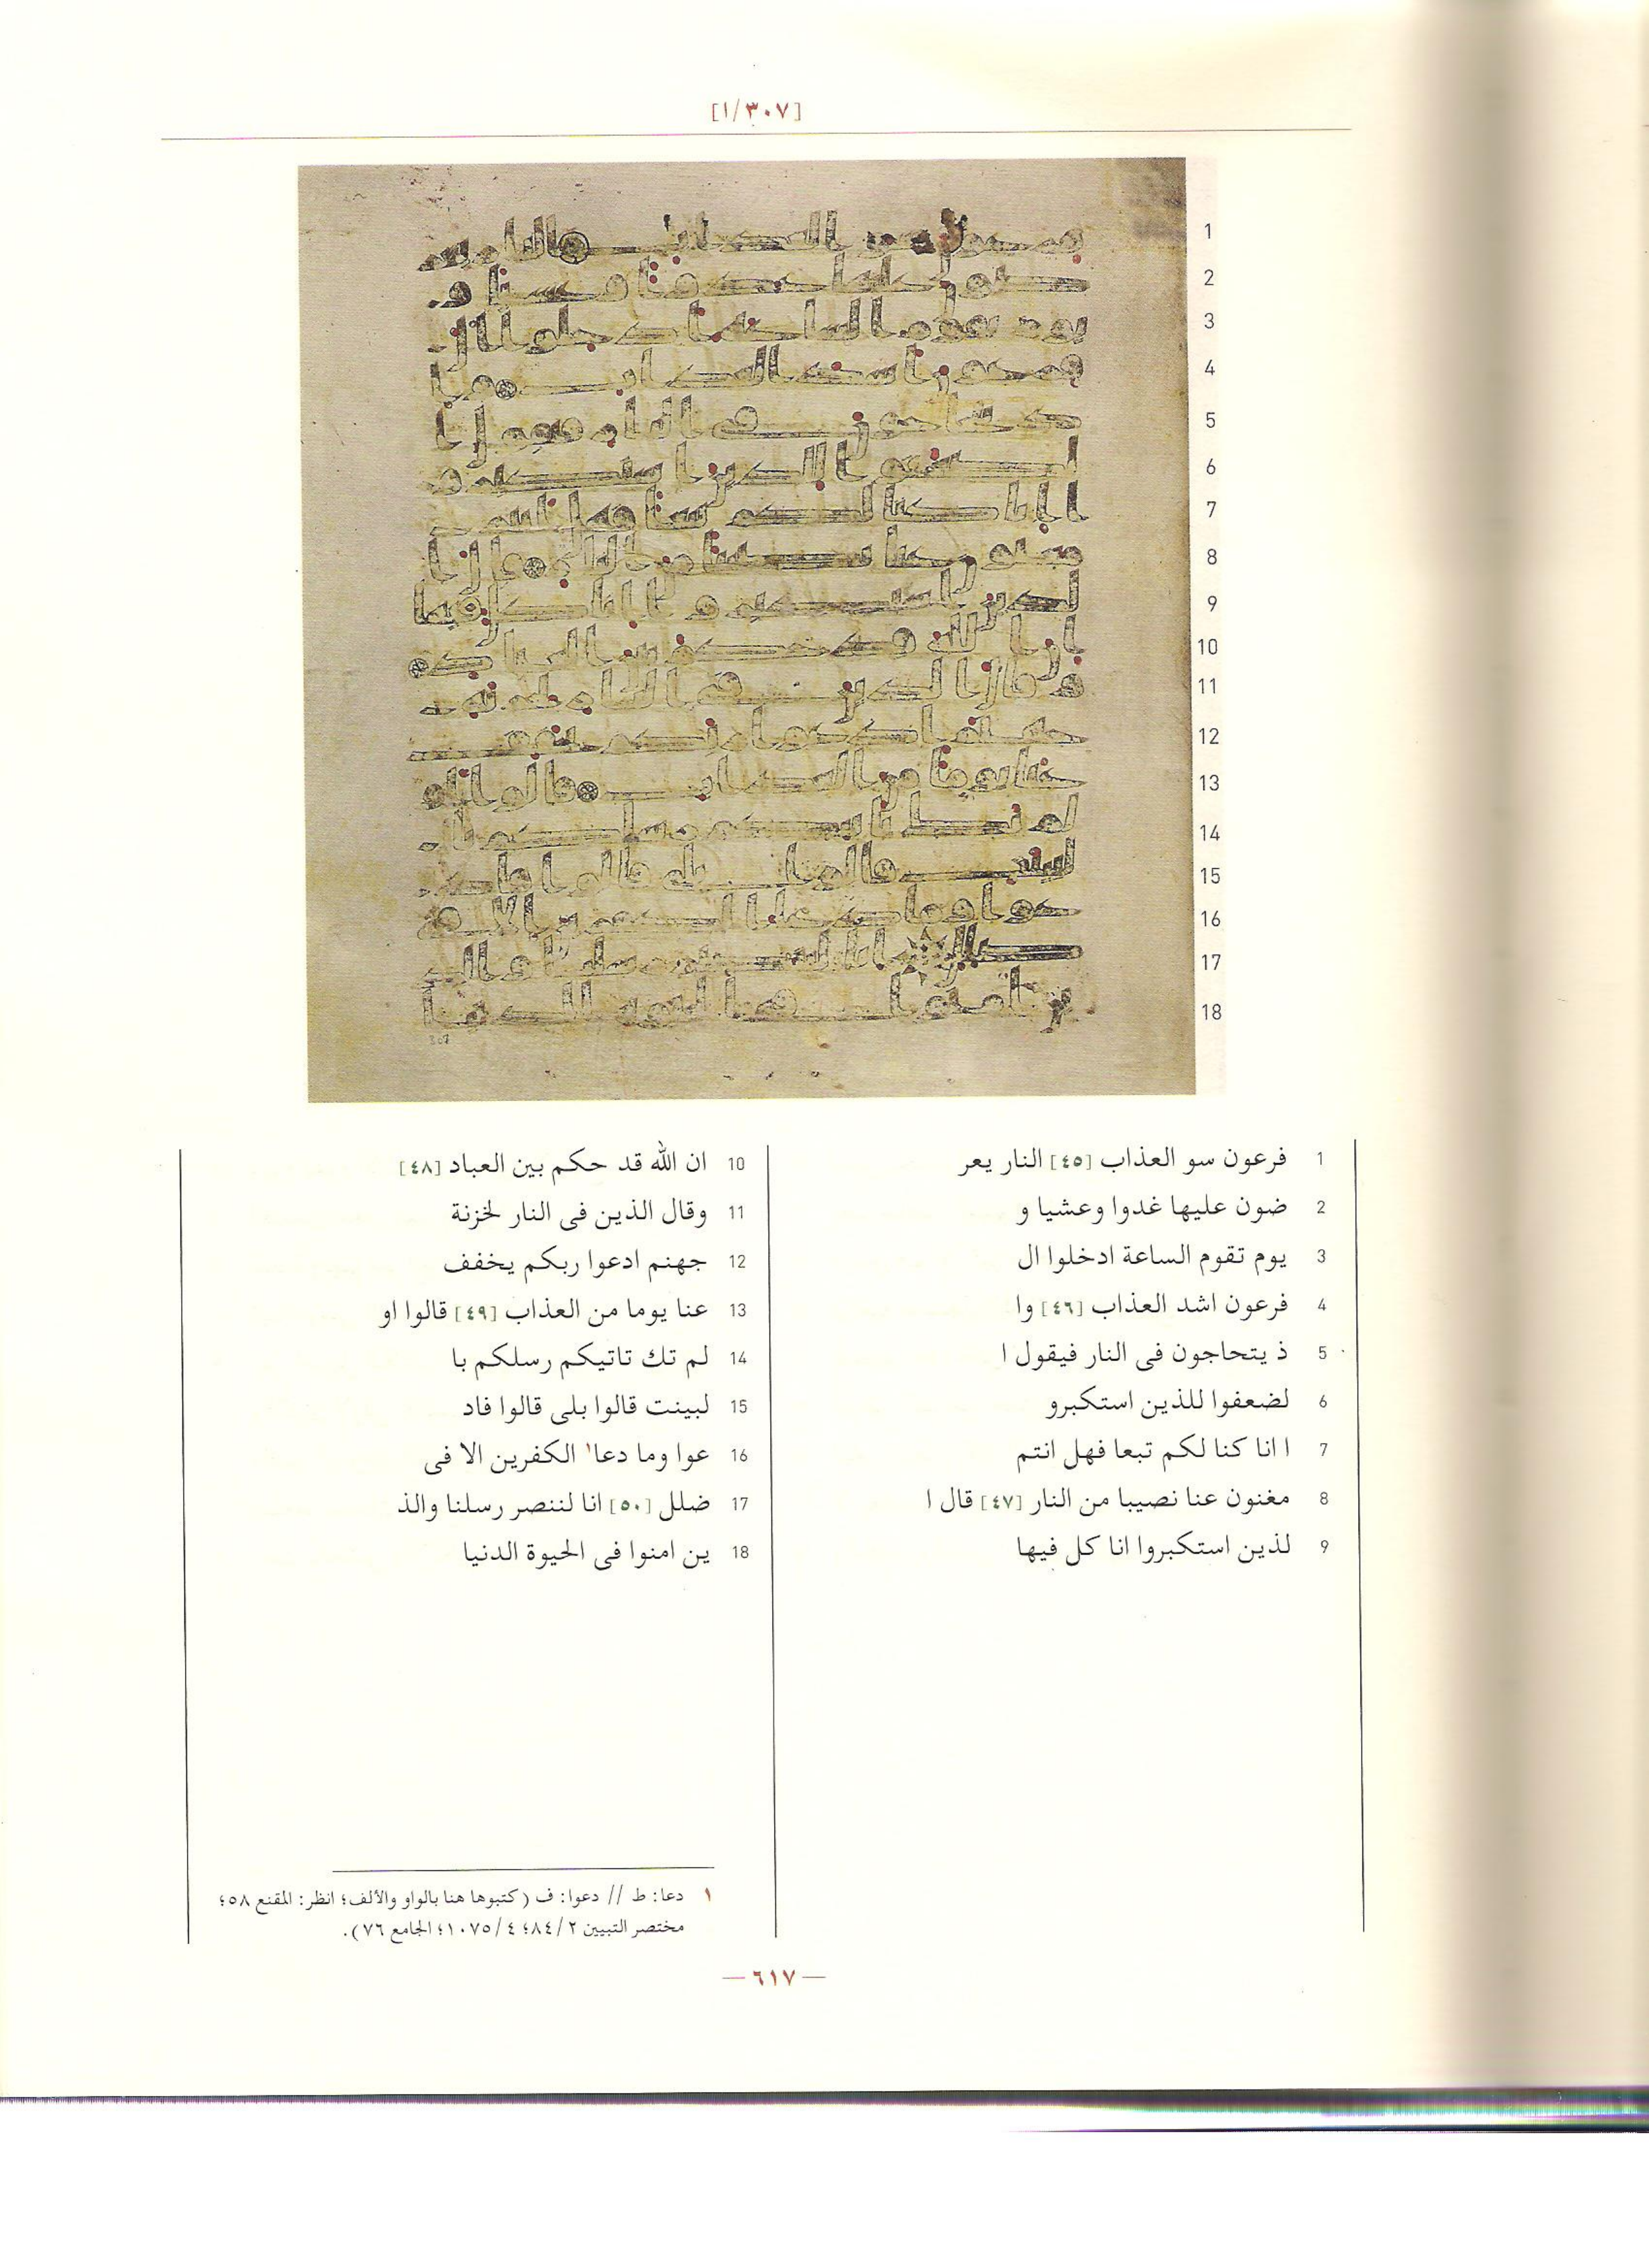 [٣٠٧/١]
1 فرعون سو العذاب [٤٥] النار يعر
2 ضون عليها غدوا وعشيا و
3 يوم تقوم الساعة ادخلوا ال
4 فرعون اشد العذاب [٤٦] وا
5 ذ يتحاجون فى النار فيقول ا
6 لضعفوا للذين استكبرو
7 ا انا كنا لكم تبعا فهل انتم
8 مغنون عنا نصيبا من النار [٤٧] قال ا
9 لذين استكبروا انا كل فيها
10 ان الله قد حكم بين العباد [٤٨]
11 وقال الذين فى النار لخزنة
12 جهنم ادعوا ربكم يخفف
13 عنا يوما من العذاب [٤٩] قالوا او
14 لم تك تاتيكم رسلكم با
15 لبينت قالوا بلى قالوا فاد
16 عوا وما دعا١ الكفرين الا فى
17 ضلل [٥٠] انا لننصر رسلنا والذ
18 ين امنوا فى الحيوة الدنيا
١ دعا: ط // دعوا: ف (كتبوها هنا بالواو والألف؛ انظر: المقنع ٥٨؛
مختصر التبيين ٨٤/٢؛ ١٠٧٥/٤؛ الجامع ٧٦).
—٦١٧—